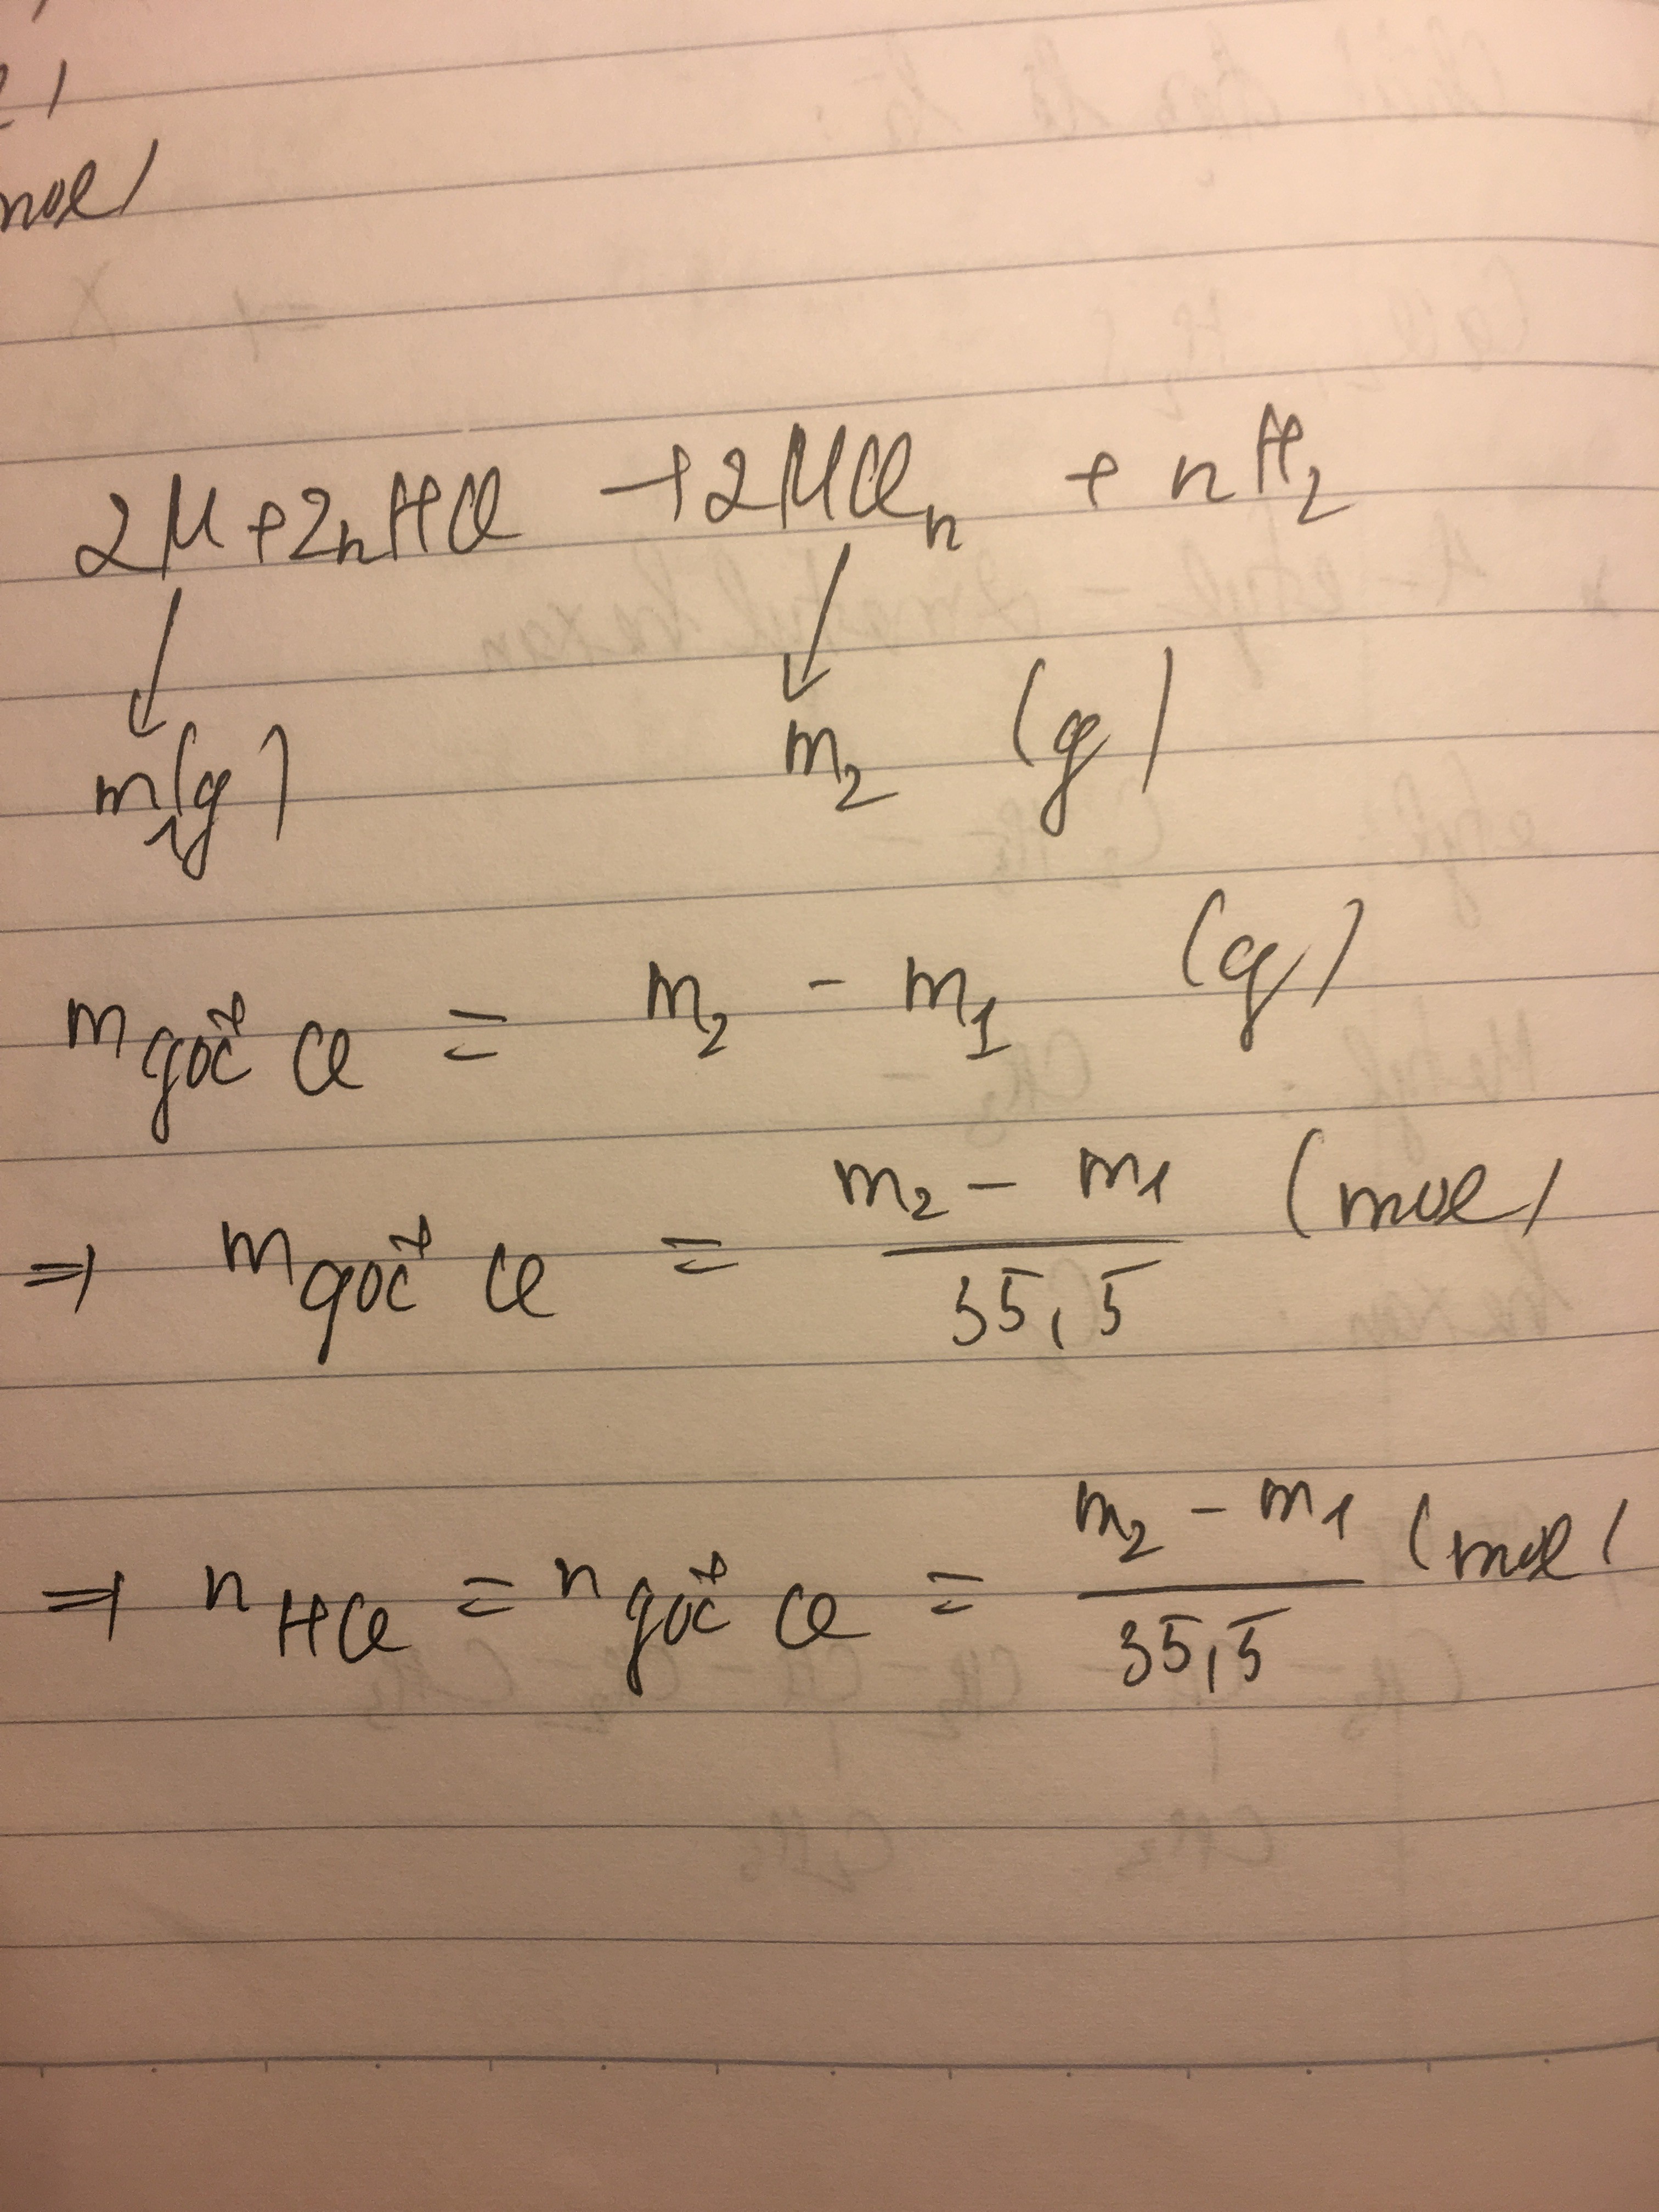 mol)
2M + 2nHCl → 2MCln + nH2
m1(g) m2 (g)
m gốc Cl = m2 - m1 (g)
=> m gốc Cl = m2 - m1 / 35,5 (mol)
=> n HCl = n gốc Cl = m2 - m1 / 35,5 (mol)